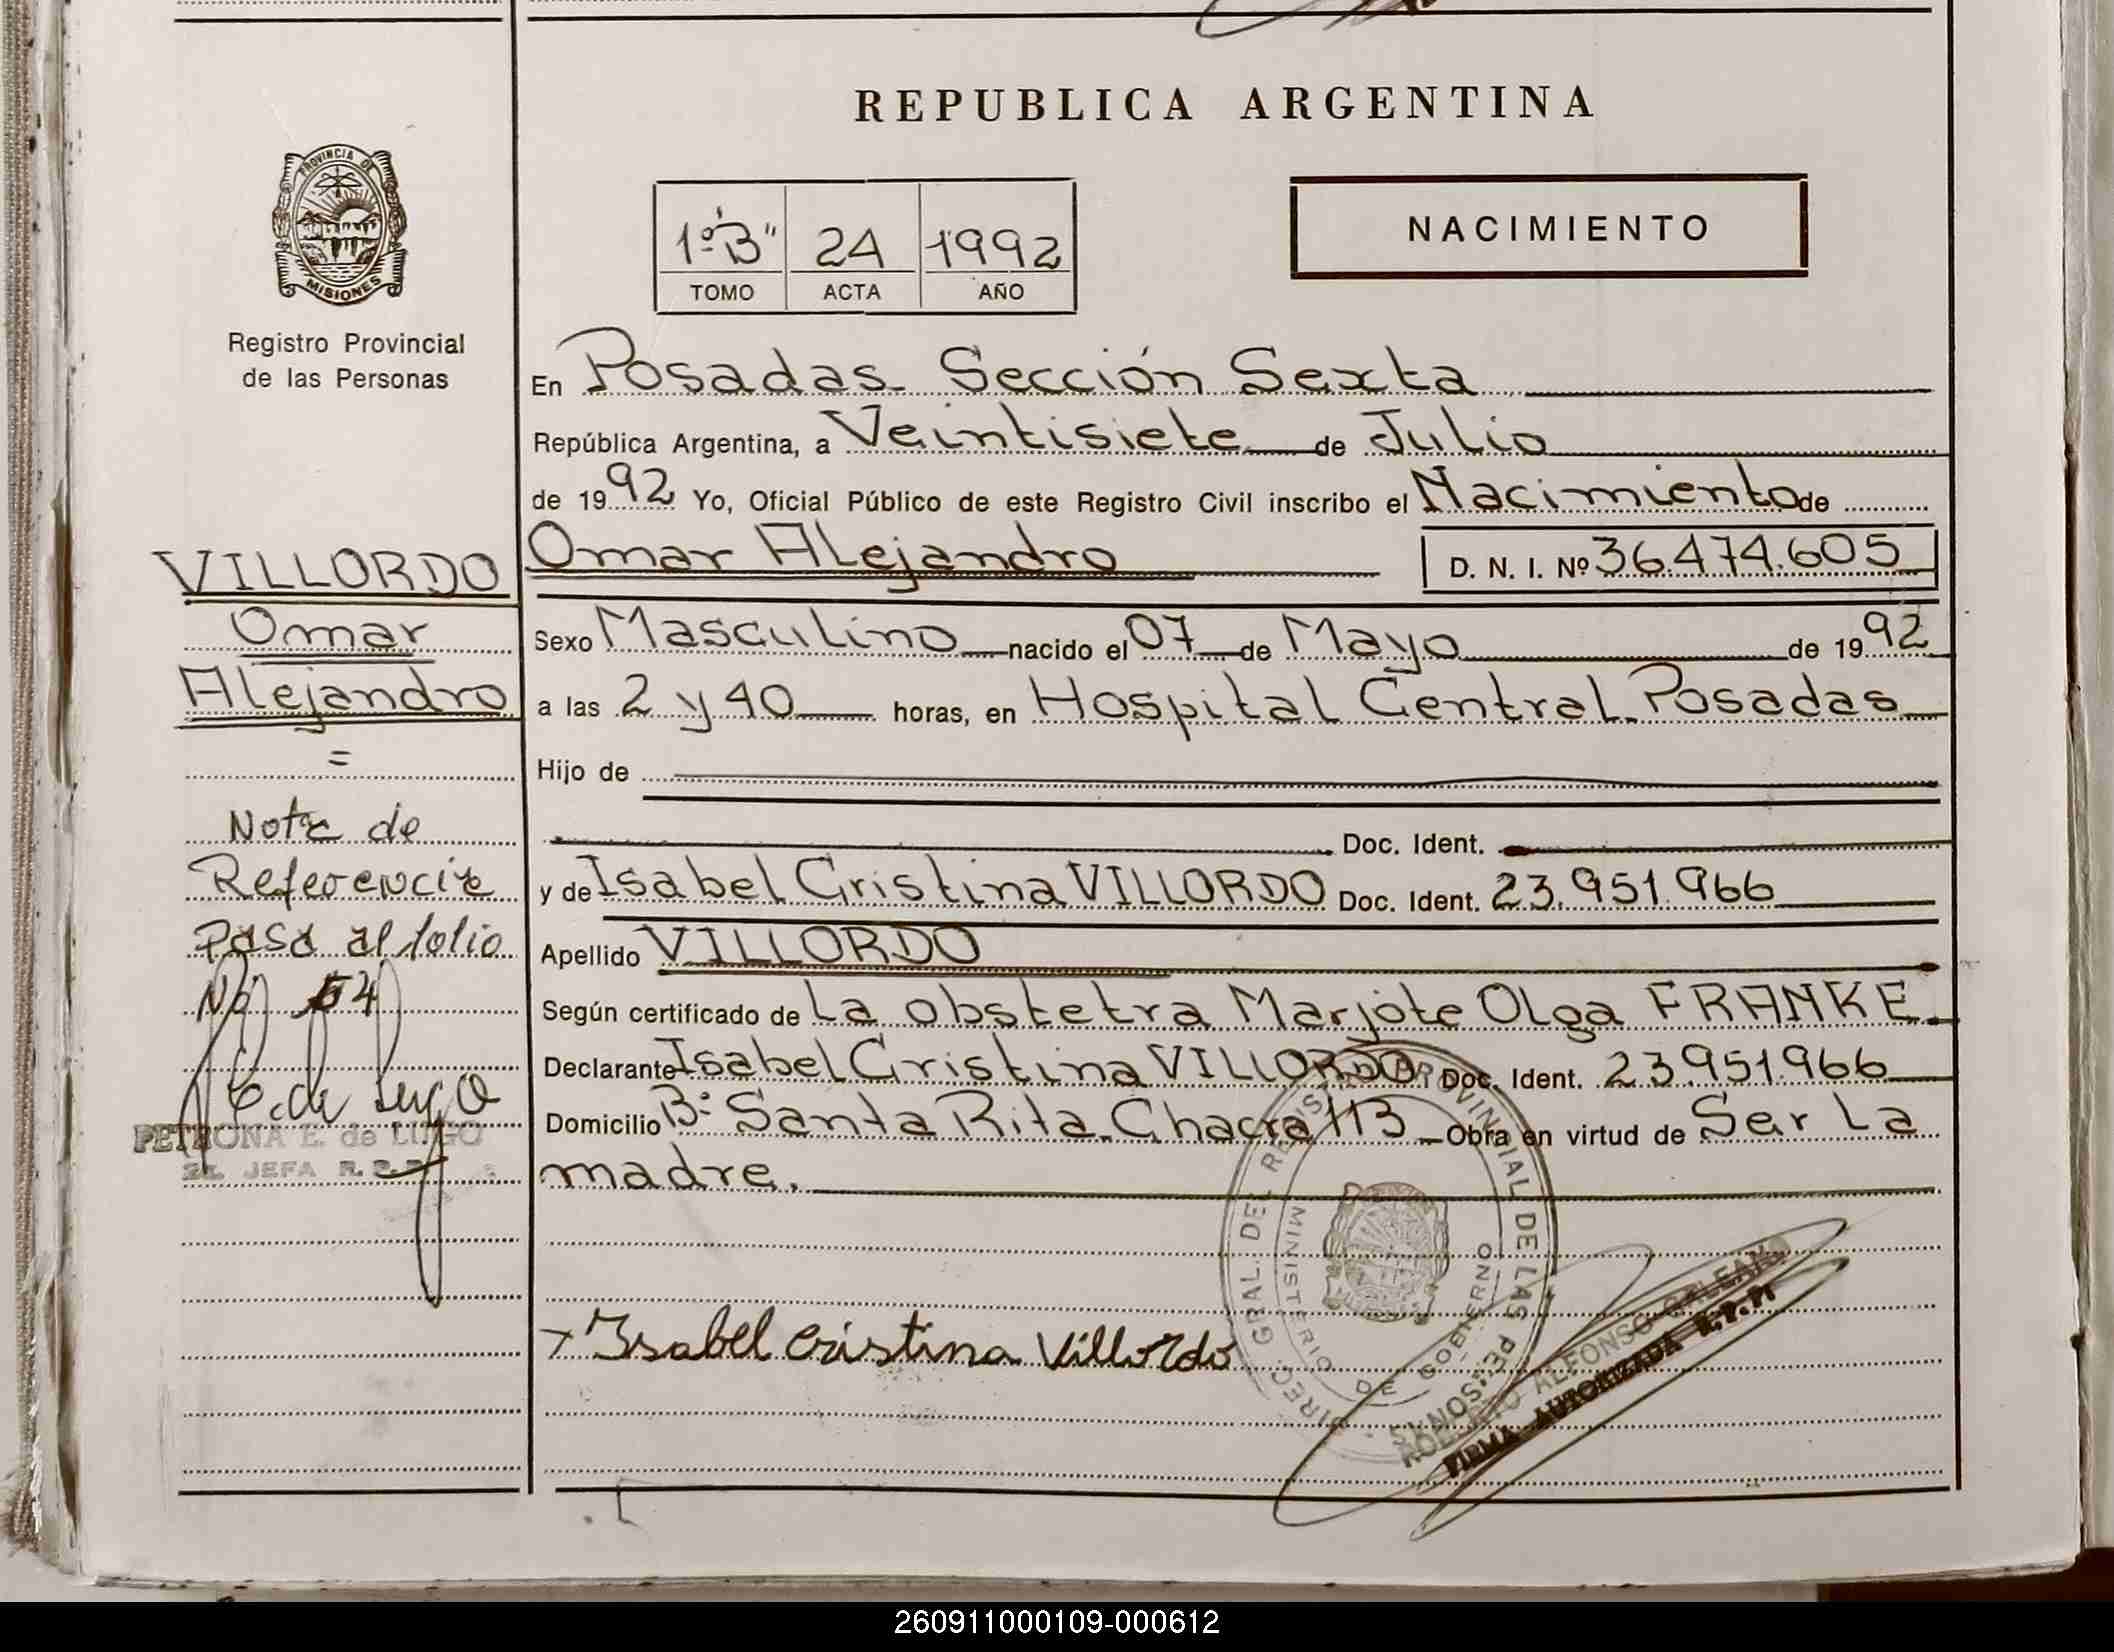 REPUBLICA ARGENTINA
PROVINCIA DE
MISIONES
Registro Provincial
de las Personas
1º "B" 24 1992
TOMO ACTA AÑO
NACIMIENTO
En Posadas Sección Sexta
República Argentina, a Veintisiete de Julio
de 1992 Yo, Oficial Público de este Registro Civil inscribo el Nacimiento de
Omar Alejandro D. N. I. Nº 36.474.605
Sexo Masculino nacido el 07 de Mayo de 1992
a las 2 y 40 horas, en Hospital Central Posadas
Hijo de
Doc. Ident.
y de Isabel Cristina VILLORDO Doc. Ident. 23.951.966
Apellido VILLORDO
Según certificado de La obstetra Marjote Olga FRANKE
Declarante Isabel Cristina VILLORDO Doc. Ident. 23.951.966
Domicilio Bº Santa Rita. Chacra 113 Obra en virtud de Ser La
madre.
Isabel Cristina Villordo
VILLORDO
Omar
Alejandro
=
Nota de
Referencia
Pasa al folio
Nº 54
PETRONA E. de LUGO
JEFA
DIREC. GRAL. DEL REGISTRO PROVINCIAL DE LAS PERSONAS
MINISTERIO DE GOBIERNO
ALFONSO GALEANO
FIRMA AUTORIZADA R.P.P.
260911000109-000612